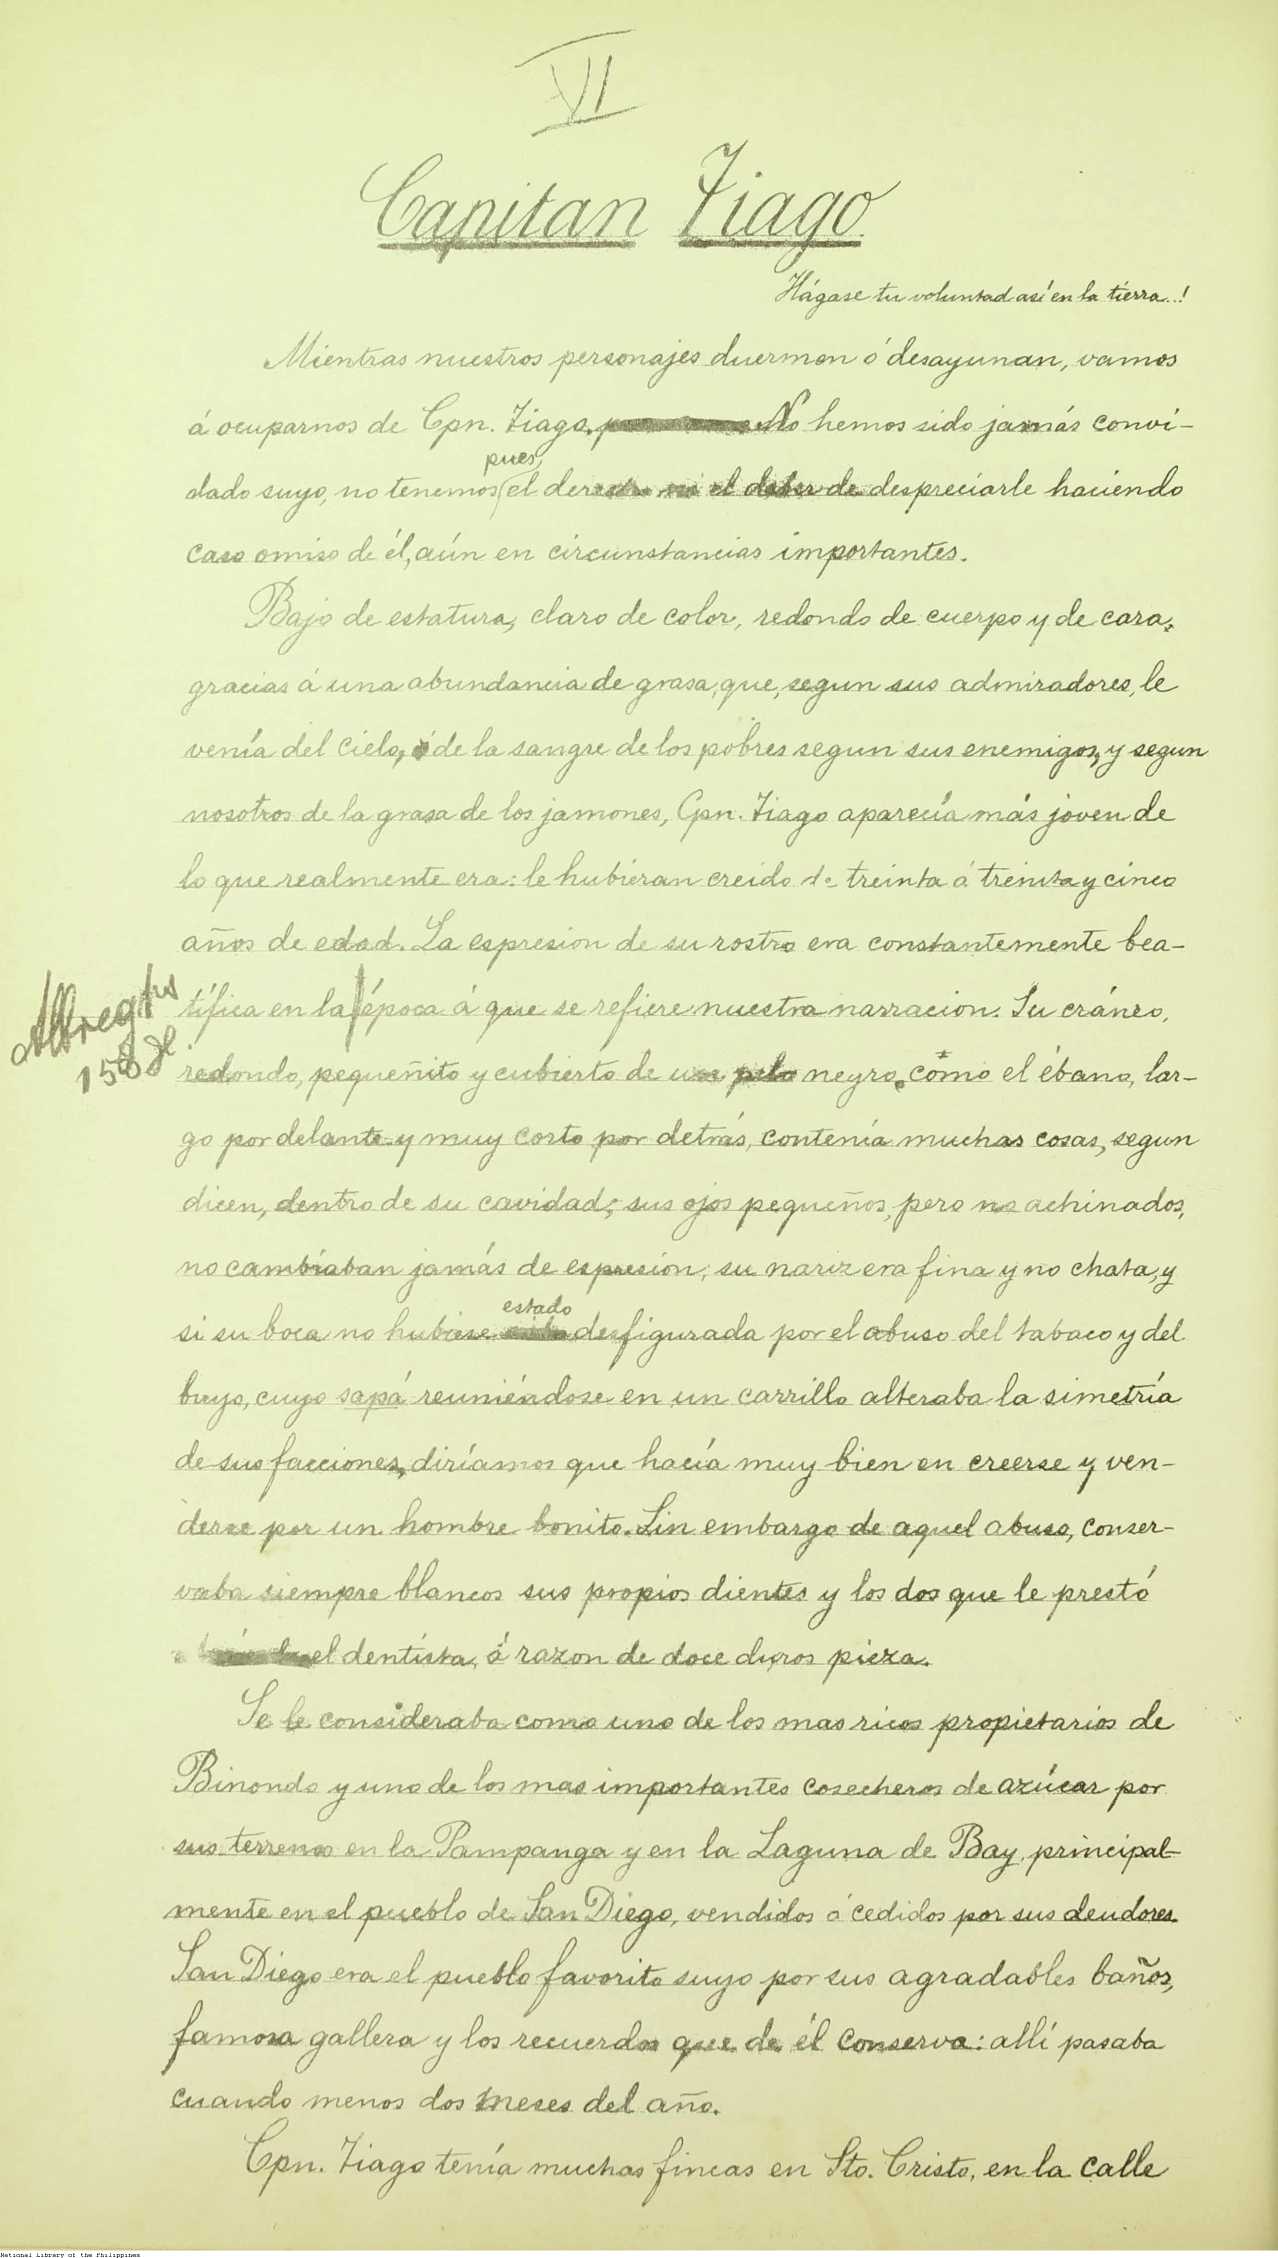 VI
Capitan Tiago
Hágase tu voluntad así en la tierra..!
Mientras nuestros personajes duermen ó desayunan, vamos
á ocuparnos de Cpn. Tiago. No hemos sido jamás convi-
pues,
dado suyo, no tenemos el derecho ni el deber de despreciarle haciendo
caso omiso de él, aún en circunstancias importantes.
Bajo de estatura, claro de color, redondo de cuerpo y de cara,
gracias á una abundancia de grasa, que, segun sus admiradores, le
venía del cielo, de la sangre de los pobres segun sus enemigos, y segun
nosotros de la grasa de los jamones, Cpn. Tiago aparecía más joven de
lo que realmente era: le hubieran creido de treinta á treinta y cinco
años de edad. La espresion de su rostro era constantemente bea-
tífica en la época á que se refiere nuestra narracion. Su cráneo,
158
redondo, pequeñito y cubierto de un pelo negro como el ébano, lar-
go por delante y muy corto por detrás, contenía muchas cosas, segun
dicen, dentro de su cavidad; sus ojos pequeños, pero no achinados,
no cambiaban jamás de espresion; su nariz era fina y no chata, y
estado
si su boca no hubiese desfigurada por el abuso del tabaco y del
buyo, cuyo sapá reuniéndose en un carrillo alteraba la simetría
de sus facciones, diríamos que hacía muy bien en creerse y ven-
derse por un hombre bonito. Sin embargo de aquel abuso, conser-
vaba siempre blancos sus propios dientes y los dos que le prestó
el dentista, á razon de doce duros pieza.
Se le consideraba como uno de los mas ricos propietarios de
Binondo y uno de los mas importantes cosecheros de azúcar por
sus terrenos en la Pampanga y en la Laguna de Bay, principal-
mente en el pueblo de San Diego, vendidos ó cedidos por sus deudores.
San Diego era el pueblo favorito suyo por sus agradables baños,
famosa gallera y los recuerdos que de él conserva: allí pasaba
cuando menos dos meses del año.
Cpn. Tiago tenía muchas fincas en Sto. Cristo, en la calle
National Library of the Philippines